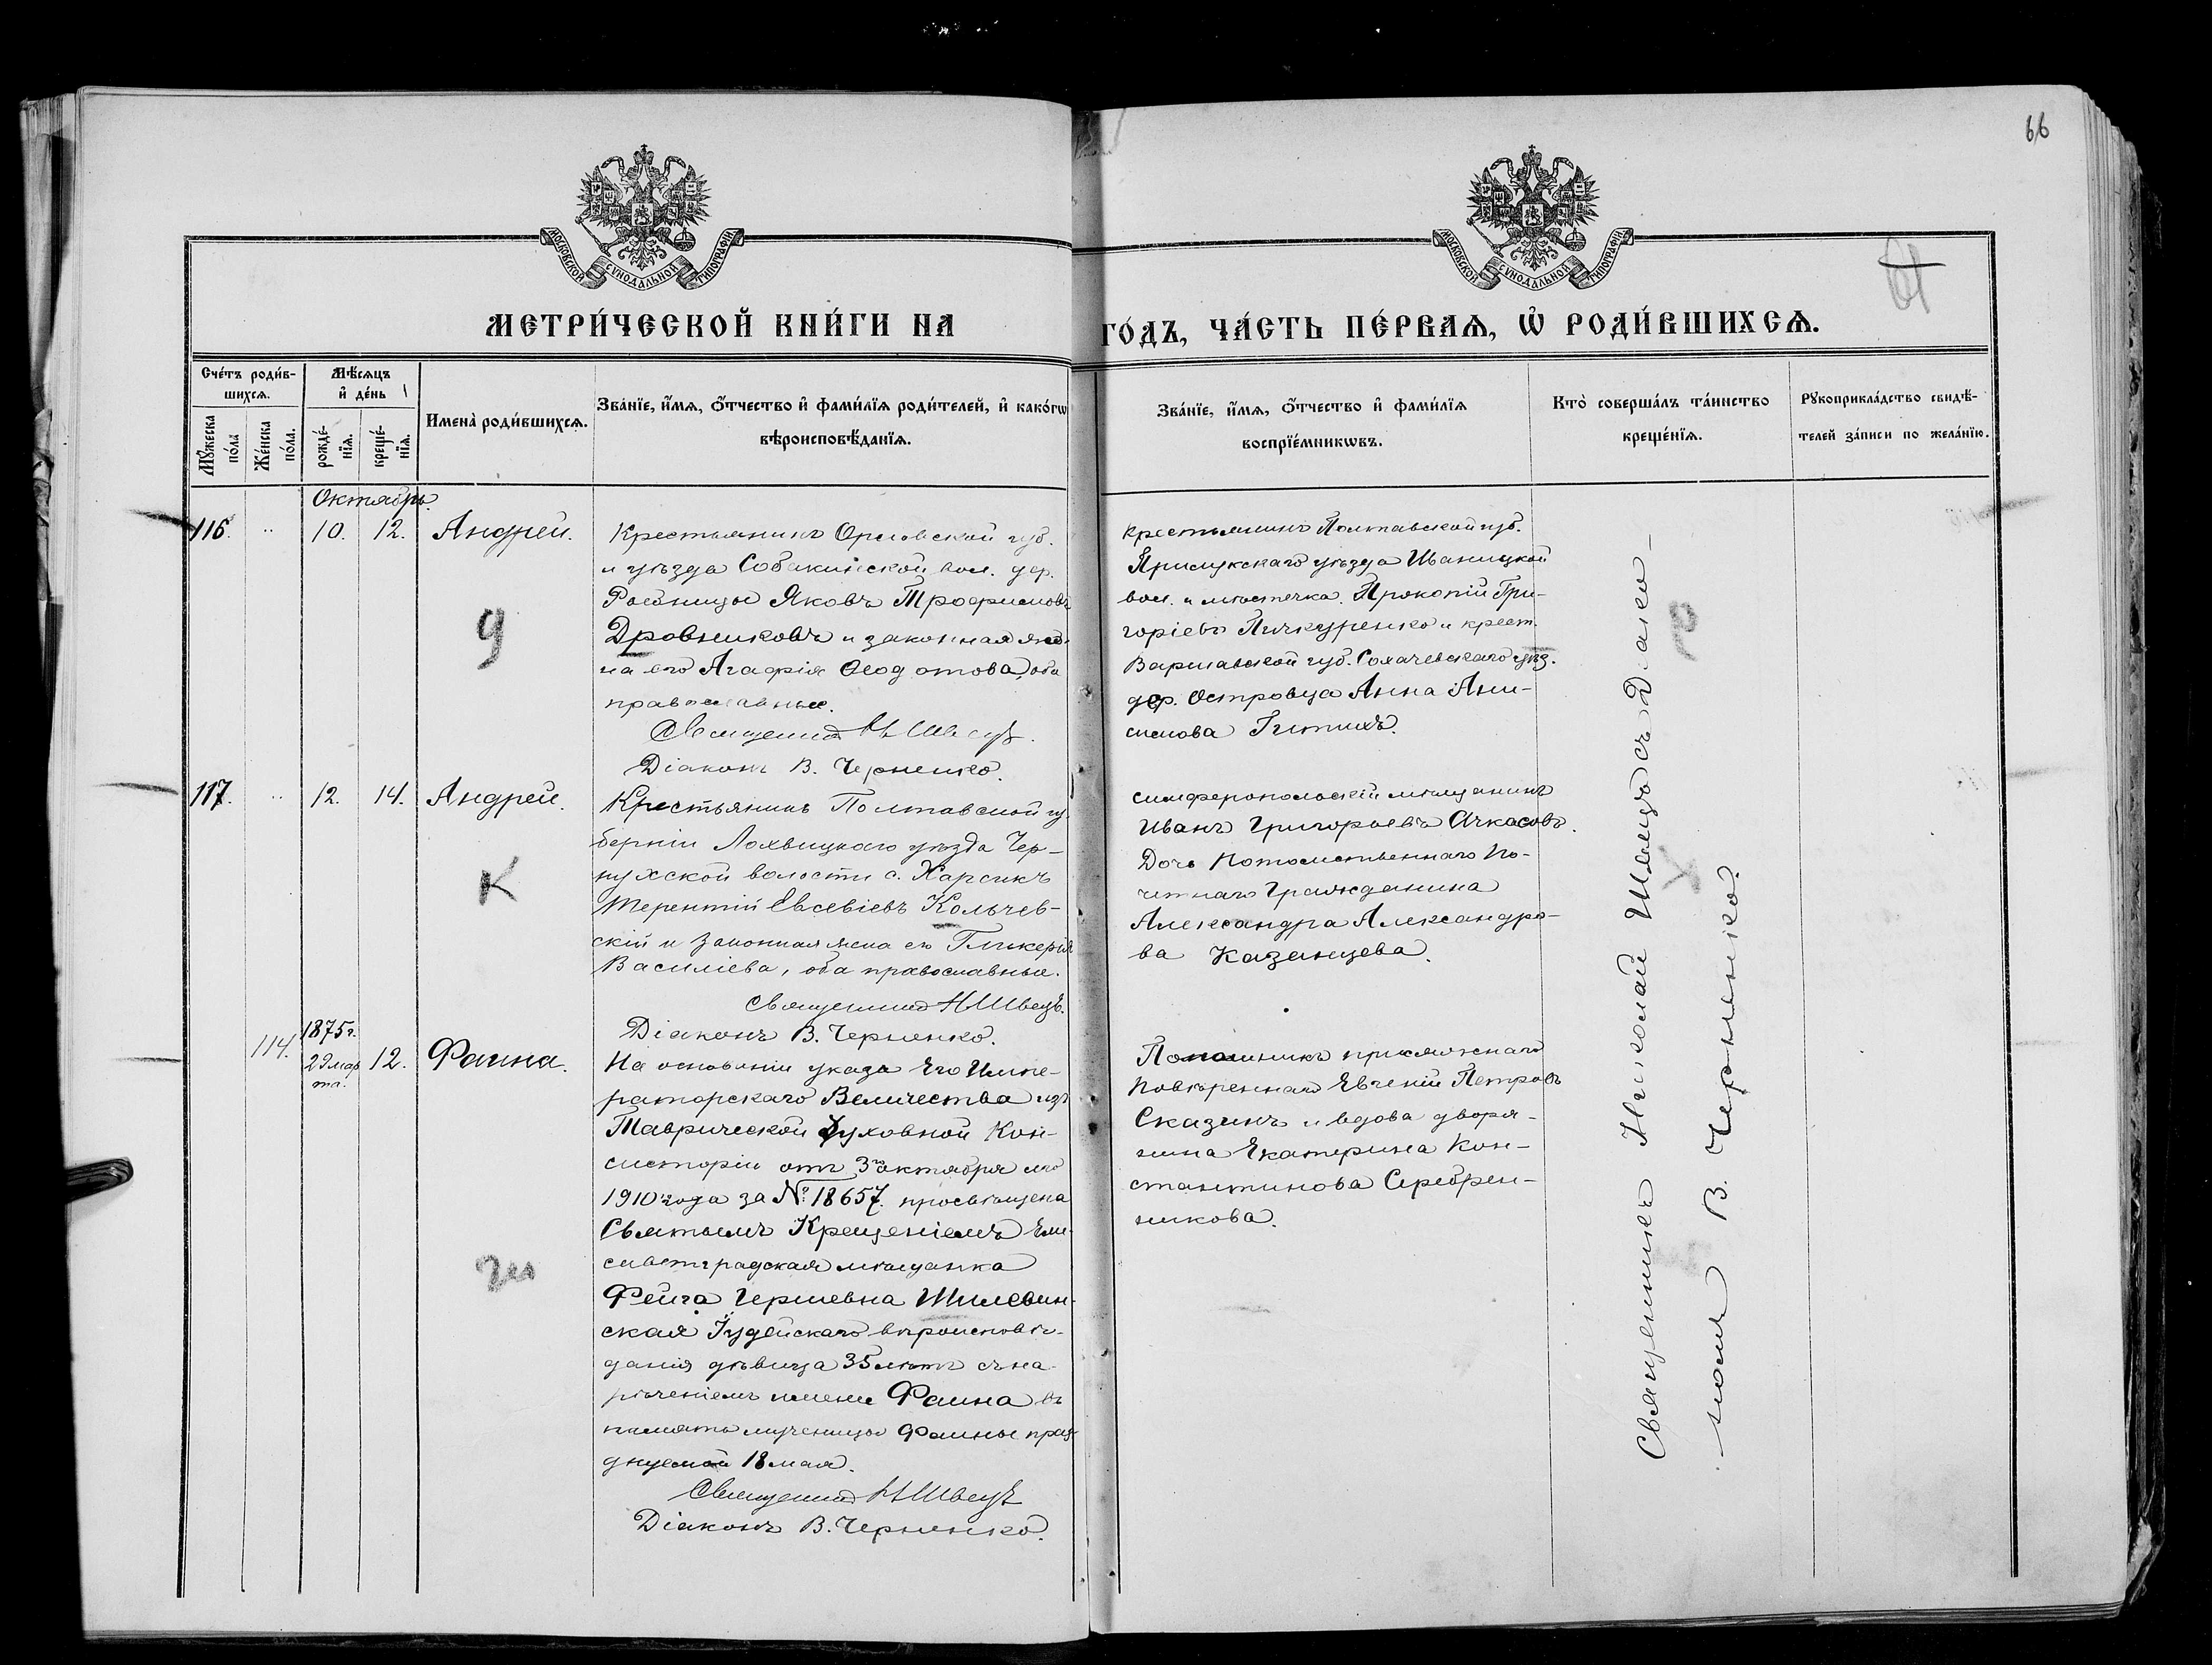 66
МОСКОВСКОЙ СѴНОДАЛЬНОЙ ТИПОГРАФІИ
МОСКОВСКОЙ СѴНОДАЛЬНОЙ ТИПОГРАФІИ
МЕТРИ́ЧЕСКОЙ КНИ́ГИ НА
ГО́ДЪ, ЧА́СТЬ ПЕ́РВАѦ, Ѡ҆ РОДИ́ВШИХСѦ.
Сче́тъ роди́в-
шихсѧ.
Мꙋ́жеска
по́ла
Же́нска
по́ла.
Мѣ́сѧцъ
и҆ де́нь
рожде́-
нїѧ.
креще́-
нїѧ.
Имена̀ роди́вшихсѧ.
Зва́нїе, и҆́мѧ, ѻ҆́тчество и҆ фами́лїѧ роди́телей, и҆ како́гѡ
вѣроисповѣ́данїѧ.
Зва́нїе, и҆́мѧ, ѻ҆́тчество и҆ фами́лїѧ
воспрїе́мникѡвъ.
Кто̀ соверша́лъ та́инство
креще́нїѧ.
Рꙋкоприкла́дство свидѣ́-
телей за́писи по жела́нїю.
Октябрь.
116. 10. 12. Андрей.
Крестьянинъ Орловской губ.
и уѣзда Собакинской вол. дер.
Яковъ Трофимовъ
Дровниковъ и законная же-
на его Агафія Ѳеодотова, оба
православные.
Священникъ Н Швецъ.
Діаконъ В. Черненко.
крестьянинъ Полтавской губ.
Прилукскаго уѣзда Иваницкой
вол. и мѣстечка. Прокопій Гри-
горіевъ Пичкуренко и крест.
Варшавской губ. Сохачевскаго уѣз.
дер. Островца Анна Ани-
симова
Д
117. 12. 14. Андрей.
Крестьянинъ Полтавской гу-
берніи Лохвицкаго уѣзда Чер-
нухской волости с. Харсикъ
Терентій Евсевіевъ Кольчев-
скій и законная жена его Гликерія
Василіева, оба православные.
Священникъ Н Швецъ.
Діаконъ В. Черненко.
К
симферопольскій мѣщанинъ
Иванъ Григорьевъ Ачкасовъ.
Дочь Потомственнаго По-
четнаго Гражданина
Александра Александро-
ва Казанцева.
114. 1875 г.
29 мар
та. 12. Фаина.
На основаніи указа Его Импе-
раторскаго Величества изъ
Таврической Духовной Кон-
систоріи отъ 3го октября мѣ
1910 года за № 18657. просвѣщена
Святымъ Крещеніемъ Ели-
саветградская мѣщанка
Фейга Гершевна Шилевин-
ская Іудейскаго вѣроисповѣ-
данія дѣвица 35 лѣтъ съ на-
реченіемъ имени Фаина въ
память мученицы Фаины праз-
днуемой 18 мая.
Священникъ Н Швецъ
Діаконъ В. Черненко.
Ши
Помощникъ присяжнаго
повѣреннаго Евгеній Петровъ
Сказинъ и вдова дворя-
нина Екатерина Кон-
стантинова Серебрен-
никова.
Священникъ Николай Швецъ съ Діако-
номъ В. Черненко.